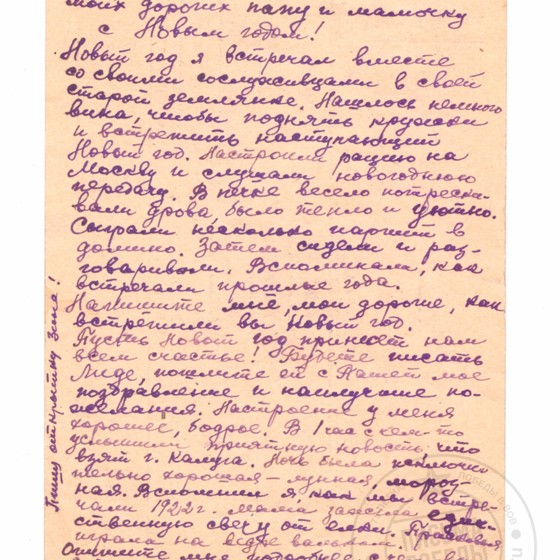 моих дорогих папу и мамочку
с Новым годом!
Новый год я встречал вместе
со своими сослуживцами в своей
старой землянке. Нашлось немного
вина, чтобы поднять кружки
и встретить наступающий
Новый год. Настроили рацию на
Москву и слушали новогоднюю
передачу. В печке весело потрески-
вали дрова, было тепло и уютно.
Сыграли несколько партий в
домино. Затем сидели и раз-
говаривали. Вспоминали, как
встречали прошлые года.
Напишите мне, мои дорогие, как
встретили вы Новый год.
Пусть Новый год принесет нам
всем счастье! Будете писать
Лиде, пошлите ей с Вашей мое
поздравление и наилучшие по-
желания. Настроение у меня
хорошее, бодрое. В 1 час с кем-то
услышали приятную новость что
взят г. Калуга. Ночь была исключи-
тельно хорошая - лунная, мороз-
ная. Вспомнил я, как мы встре-
чали 1922г. Мама зажгла един-
ственную свечу от елки.
играла на
Опишите мне подробнее
Пишу открытку Зине!